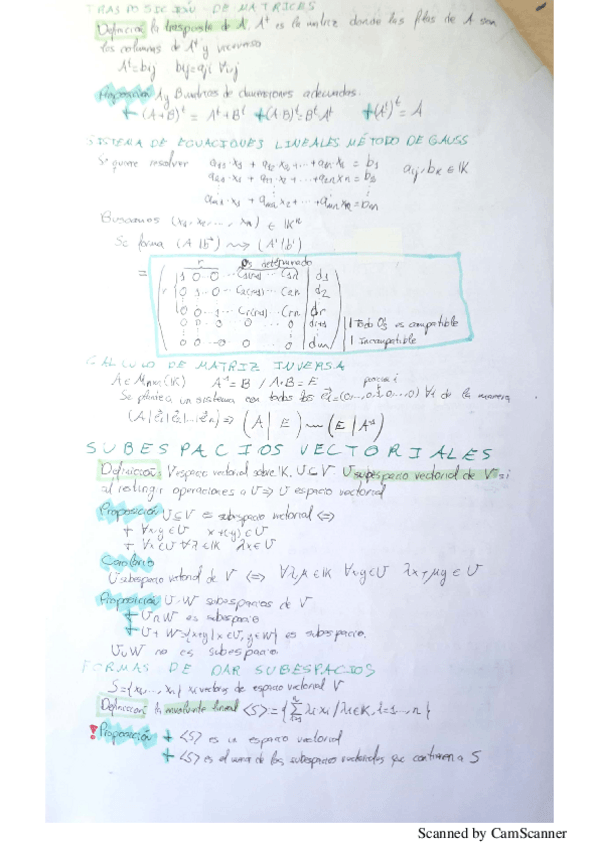 TRASPOSICIÓN DE MATRICES
Definición la trasposta de A, Aᵗ es la matriz donde las filas de A son
las columnas de Aᵗ y viceversa
Aᵗ=bij bij=aji ∀i,j
Proposición A y B cuadros de dimensiones adecuadas.
+ (A+B)ᵗ = Aᵗ+Bᵗ + (A·B)ᵗ=BᵗAᵗ + (Aᵗ)ᵗ = A
SISTEMA DE ECUACIONES LINEALES MÉTODO DE GAUSS
Se quiere resolver
aij, bk ∈ K
Buscamos (x1, x2, ..., xn) ∈ Kⁿ
Se forma (A|b) ⇝ (A'|b')
=
r
1 0 0 ... d1
0 1 0 ... d2
0 0 ... 1 dr
0 0 0 0 0 dr+1
0 0 ... 0 0 dm
Todo 0's es compatible
Incompatible
CÁLCULO DE MATRIZ INVERSA
A∈Mnxn(K) A⁻¹=B / A·B=E
Se plantea un sistema con todos los (0,...,0,1,0,...,0) ∀i de la manera
⇒ (A|E) ⇝ (E|A⁻¹)
SUBESPACIOS VECTORIALES
Definición: V espacio vectorial sobre K, U⊆V U subespacio vectorial de V si
al restringir operaciones a U ⇒ U espacio vectorial
Proposición U⊆V es subespacio vectorial ⇔
+ ∀x,y ∈ U x+y ∈ U
+ ∀x∈U ∀λ∈K λx∈U
Corolario
U subespacio vectorial de V ⇔ ∀λ,μ∈K ∀x,y∈U λx+μy∈U
Proposición U, W subespacios de V
+ U∩W es subespacio
+ U+W={x+y | x∈U, y∈W} es subespacio.
U∪W no es subespacio.
FORMAS DE DAR SUBESPACIOS
S={x1,..., xn} xi vectores de espacio vectorial V
Definición: la envolvente lineal <S>={∑λixi / λi∈K, i=1,...,n}
! Proposición + <S> es un espacio vectorial
+ <S> es el de los subespacios vectoriales que contienen a S
Scanned by CamScanner